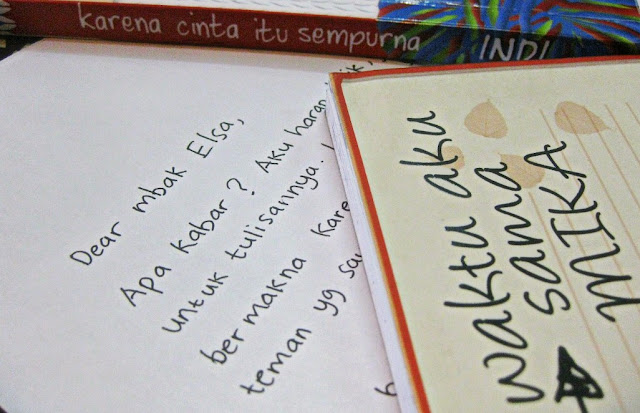 karena cinta itu sempurna
INDI
Dear mbak Elsa,
Apa kabar? Aku haran
untuk tulisannya.
bermakna Kare
teman yg sa
waktu aku
sama
MIKA